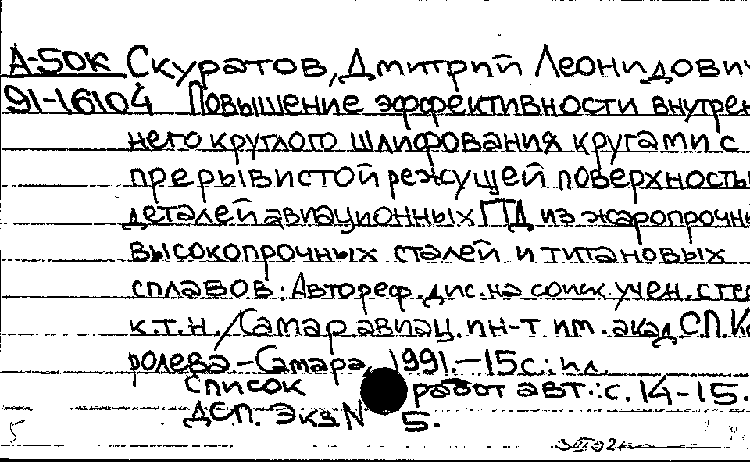 А-50к Скуратов, Дмитрий Леонидович
91-16104 Повышение эффективности внутрен
него круглого шлифования кругами с
прерывистой режущей поверхностью
деталей авиационных ГТД из жаропрочны
высокопрочных сталей и титановых
сплавов: Автореф. дис. на соиск. учен. степ
к.т.н. / Самар авиац. ин-т им. акад. С.П. Ко
ролева - Самара, 1991. - 15с.: ил.
Список работ авт.: с. 14-15.
ДСП. Экз N 5.
5